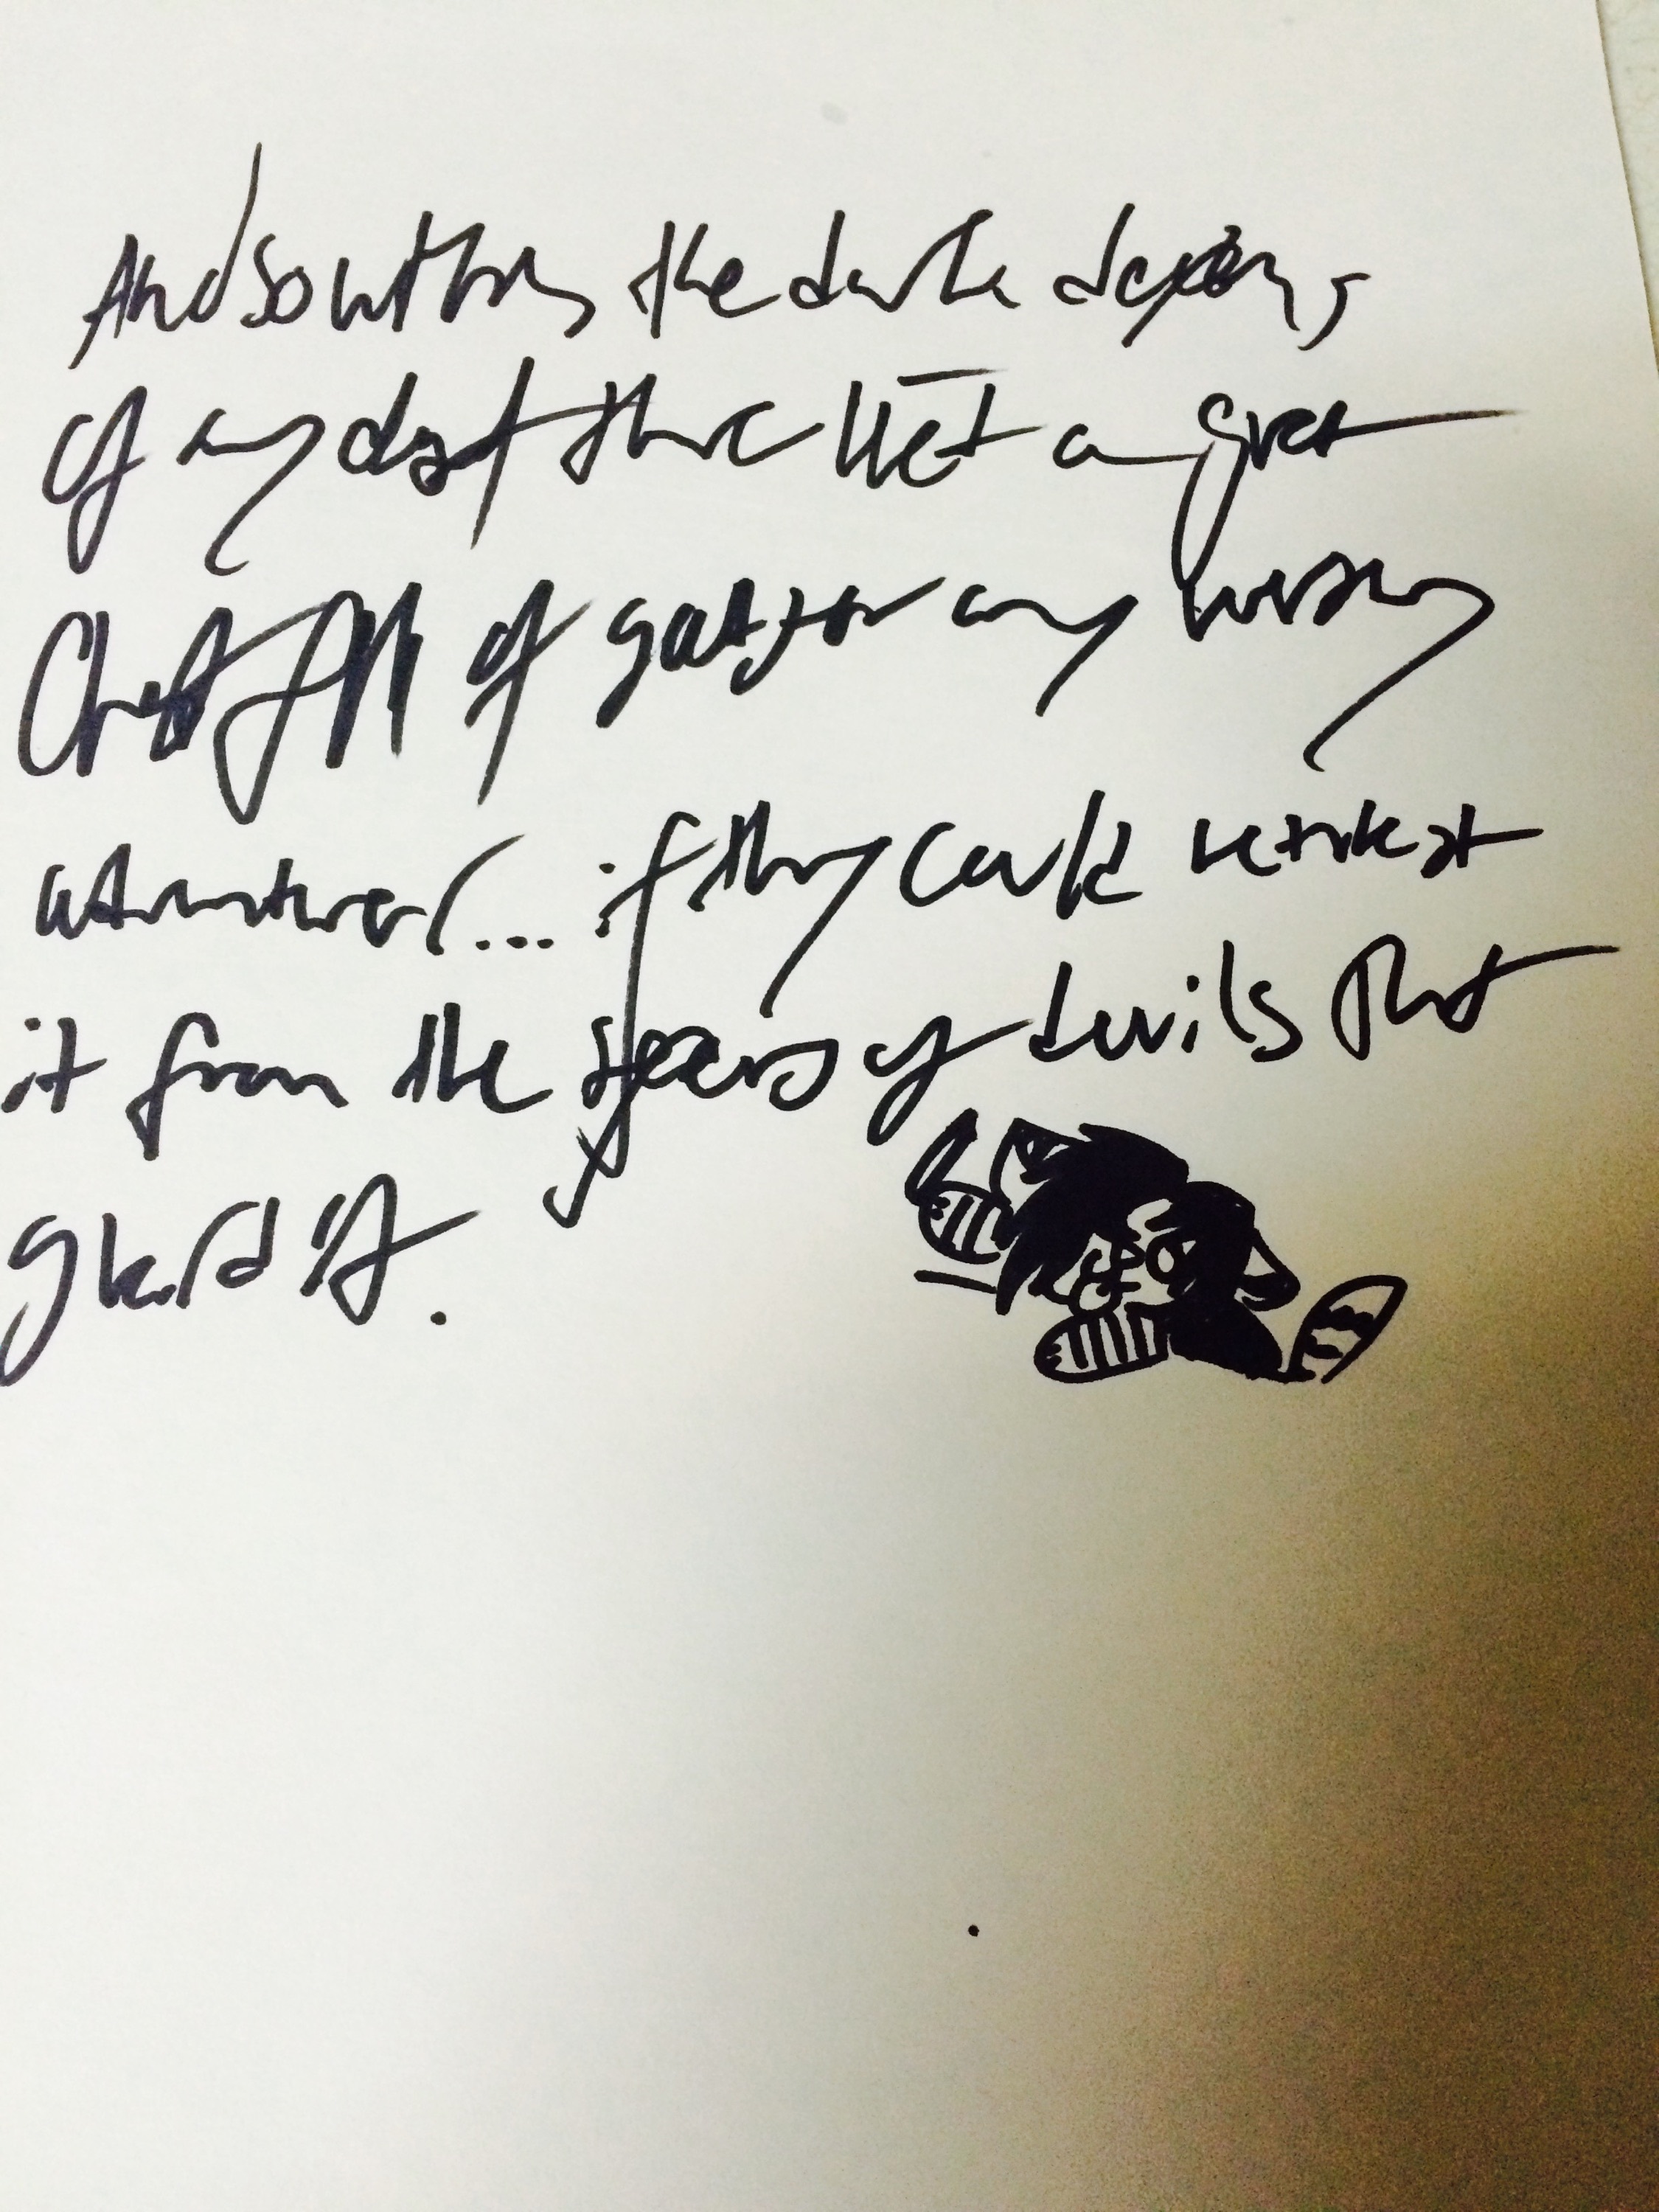 And so within the dark
of my there lies a great
Chest full of gold for any
adventurer... if they could
it from the of devils that
guard it.